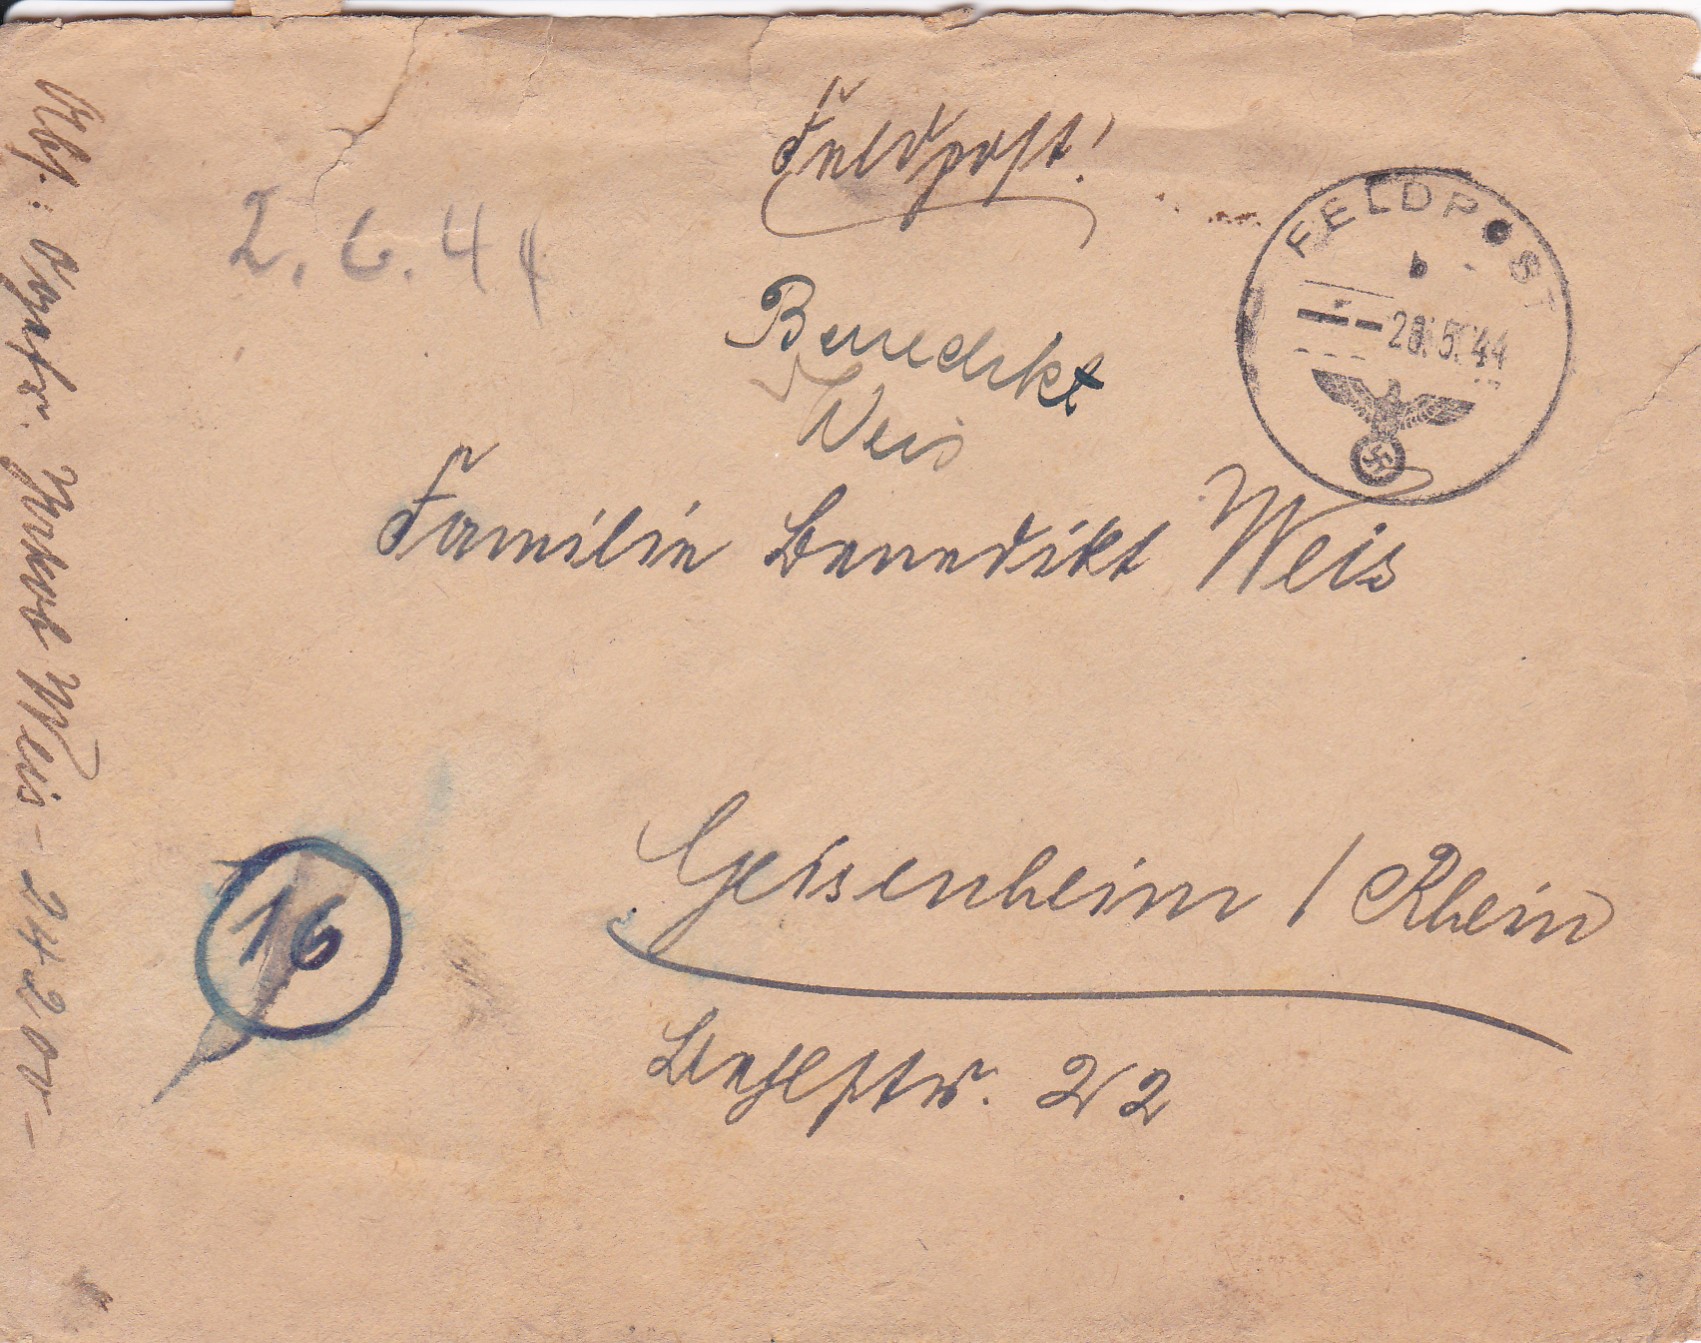 Feldpost!
FELDPOST
b
28.5.44
2.6.44
Benedikt
Weis
Familie Benedikt Weis
Geisenheim / Rhein
str. 22
16
Abs.: Weis - 24200 -